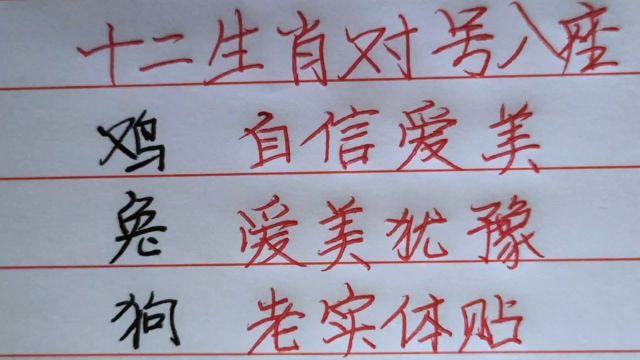 十二生肖对号入座
鸡 自信爱美
兔 爱美犹豫
狗 老实体贴